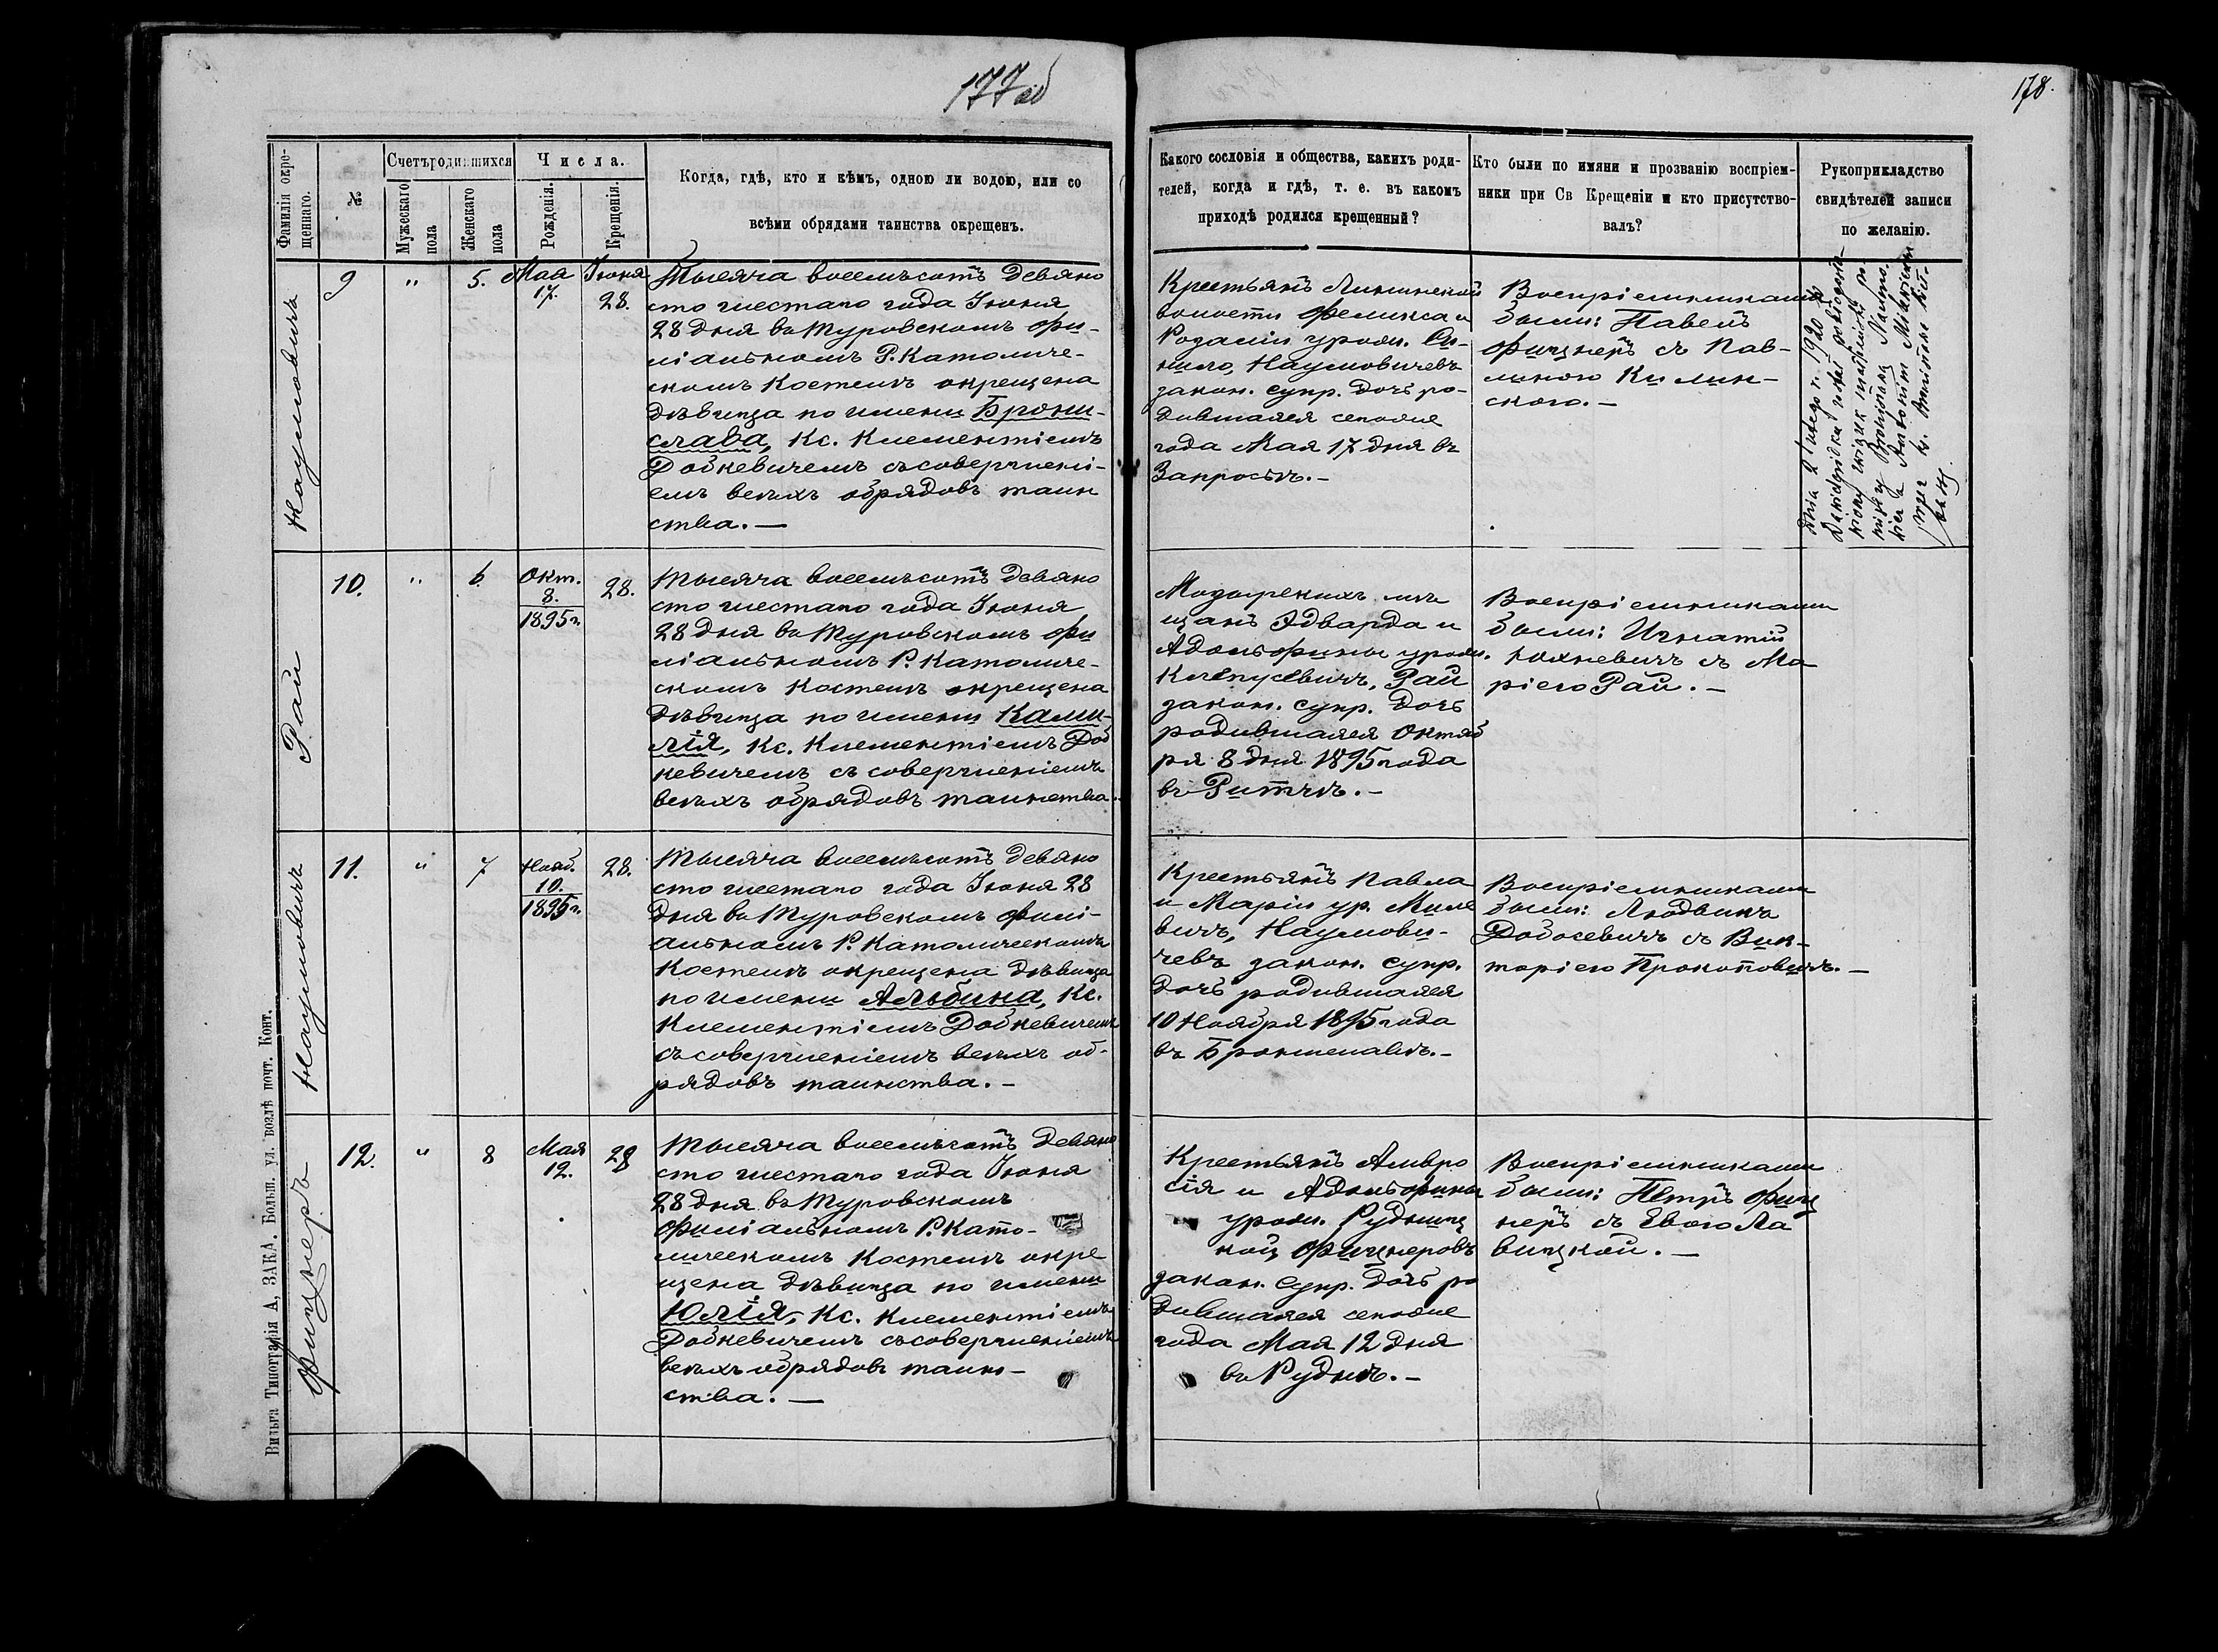 177 об
178.
Фамилія окре-
щеннаго.
№
Счетъ родившихся
Мужескаго
пола
Женскаго
пола
Числа.
Рожденія.
Крещенія.
Когда, гдѣ, кто и кѣмъ, одною ли водою, или со
всѣми обрядами таинства окрещенъ.
Какого сословія и общества, какихъ роди-
телей, когда и гдѣ, т. е. въ какомъ
приходѣ родился крещенный?
Кто были по имяни и прозванію воспріем-
ники при Св Крещеніи и кто присутство-
валъ?
Рукоприкладство
свидѣтелей записи
по желанію.
Наумовичъ
9
"
5.
Мая
17.
Іюня
28.
Тысяча восемьсотъ девяно
сто шестаго года Іюня
28 дня въ Туровскомъ фи-
ліальномъ Р. Католиче-
скомъ Костелѣ окрещена
дѣвица по имени Брони-
слава, Кс. Клементіемъ
Добкевичемъ съ совершені-
емъ всѣхъ обрядовъ таин
ства.—
Крестьянъ
волости Феликса и
Розаліи урожд.
Наумовичевъ
закон. супр. дочь ро-
дившаяся сегоже
года Мая 17 дня въ
Воспріемниками
были: Павелъ
Фицнеръ съ Пав-
линою Килин-
скою.—
Dnia 2 lutego r. 1920 w
Рай
10.
"
6
Окт.
8.
1895 г.
28.
Тысяча восемьсотъ девяно
сто шестаго года Іюня
28 дня въ Туровскомъ фи
ліальномъ Р. Католиче-
скомъ Костелѣ окрещена
дѣвица по имени Ками-
лія, Кс. Клементіемъ Доб
кевичемъ съ совершеніемъ
всѣхъ обрядовъ таинства.
Мозырскихъ мѣ
щанъ Эдварда и
Адольфины урожд.
Рай
закон. супр. дочь
родившаяся Октяб
ря 8 дня 1895 года
въ Ритчѣ.—
Воспріемниками
были: Игнатій
Юхневичъ съ Ма
ріею Рай.—
Наумовичъ
11.
"
7
Нояб.
10.
1895 г.
28.
Тысяча восемьсотъ девяно
сто шестаго года Іюня 28
дня въ Туровскомъ филі-
альномъ Р. Католическомъ
Костелѣ окрещена дѣвица
по имени Альбина, Кс.
Клементіемъ Добкевичемъ
съ совершеніемъ всѣхъ об-
рядовъ таинства.—
Крестьянъ Павла
и Маріи ур. Миле
вичъ, Наумови-
чевъ закон. супр.
дочь родившаяся
10 Ноября 1895 года
въ Брониславѣ.—
Воспріемниками
были: Людвикъ
Добосевичъ съ Вик-
торіею Прокоповичъ.—
Фицнеръ
12.
"
8
Мая
12.
28
Тысяча восемьсотъ девяно
сто шестаго года Іюня
28 дня въ Туровскомъ
филіальномъ Р. Като-
лическомъ Костелѣ окре
щена дѣвица по имени
Юлія, Кс. Клементіемъ
Добкевичемъ съ совершеніемъ
всѣхъ обрядовъ таин-
ства.—
Крестьянъ Амвро
сія и Адольфины
урожд. Рудниц
кой, Фицнеровъ
закон. супр. дочь ро
дившаяся сегоже
года Мая 12 дня
въ Руднѣ.—
Воспріемниками
были: Петръ Фиц
неръ съ Евою Ла
вицкой.—
Вильна Типографія А, ЗАКА. Больш. ул. возлѣ почт. Конт.